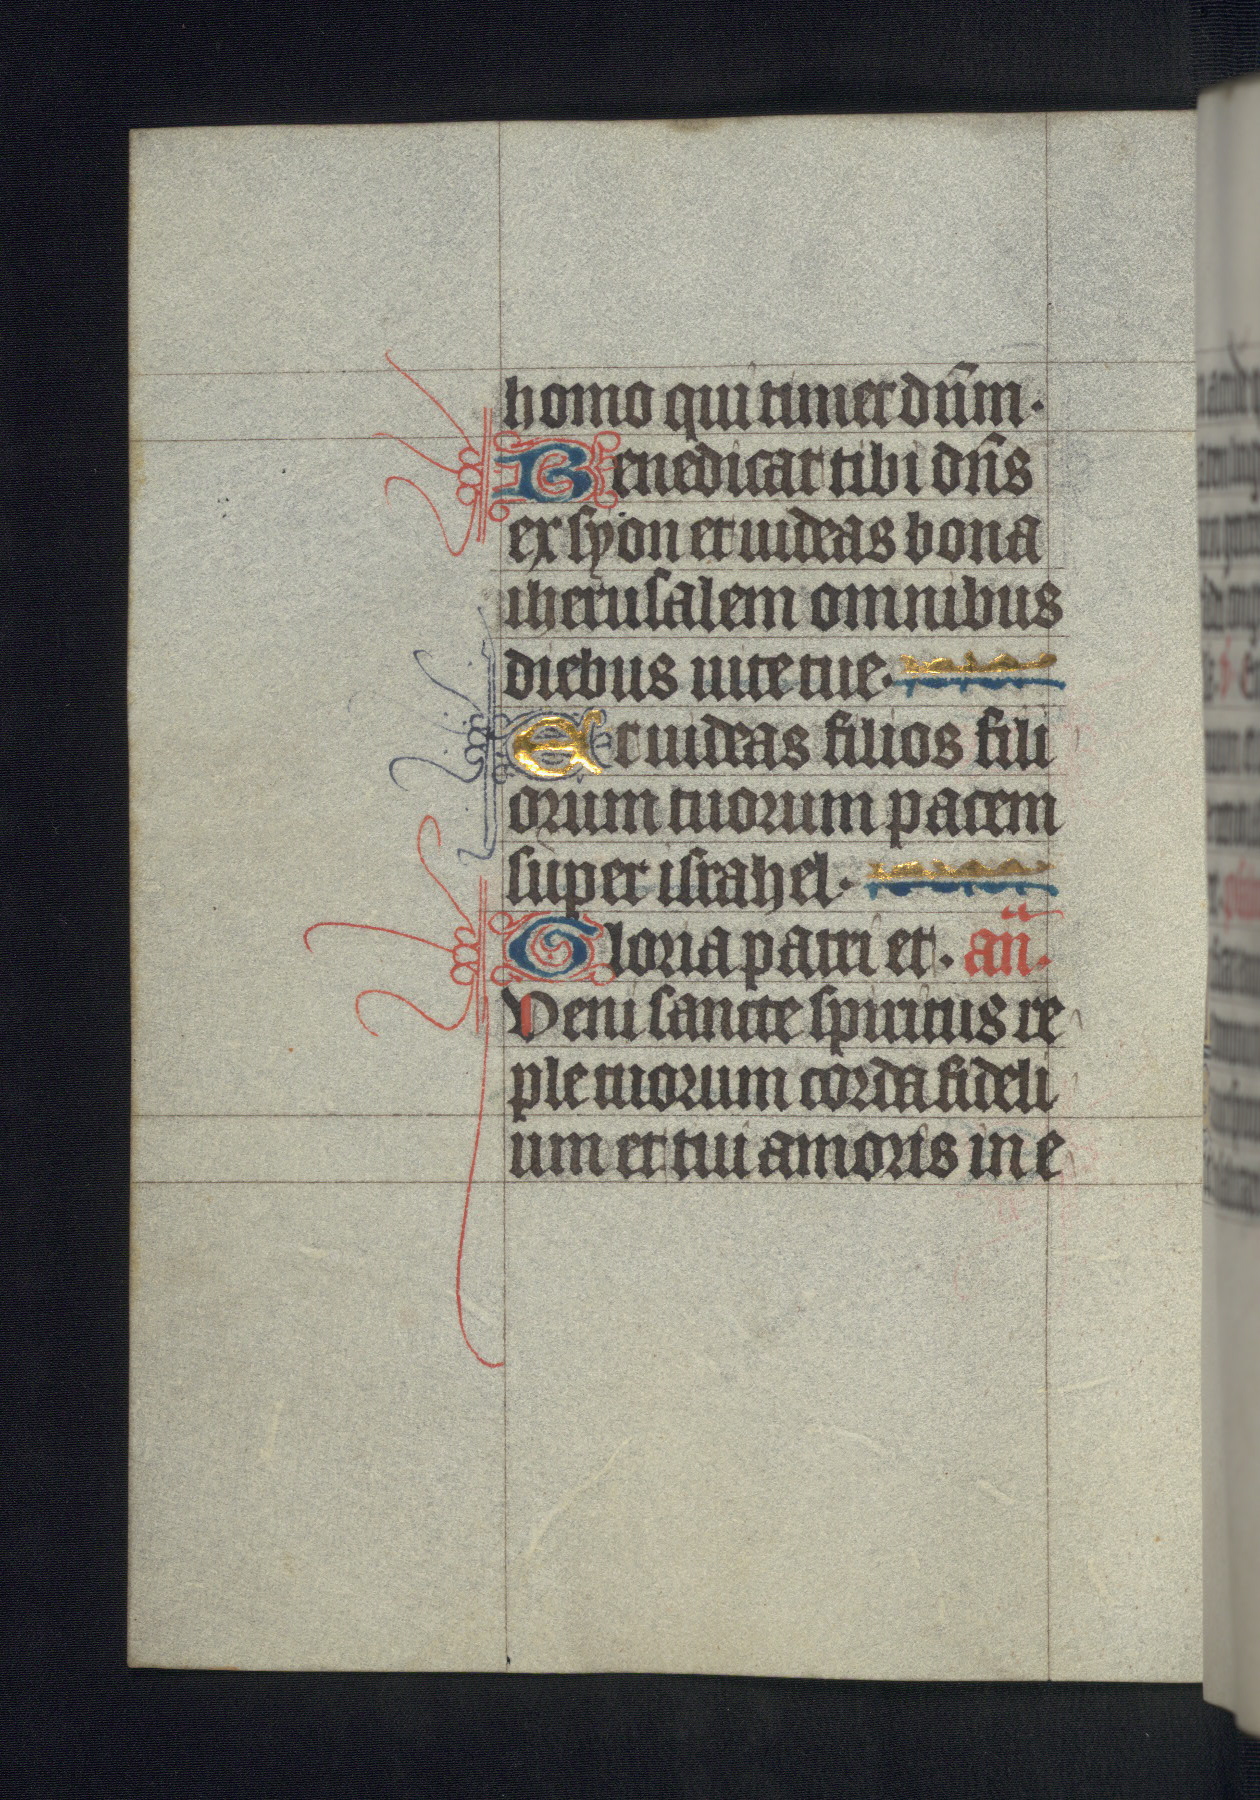 homo qui timet dn̄m·
Benedicat tibi dn̄s
ex syon et uideas bona
iherusalem omnibus
diebus uite tue·
Et uideas filios fili
orum tuorum pacem
super israhel·
Gloria patri et· an̄·
Veni sancte spiritus re
ple tuorum corda fideli
um et tui amoris in e